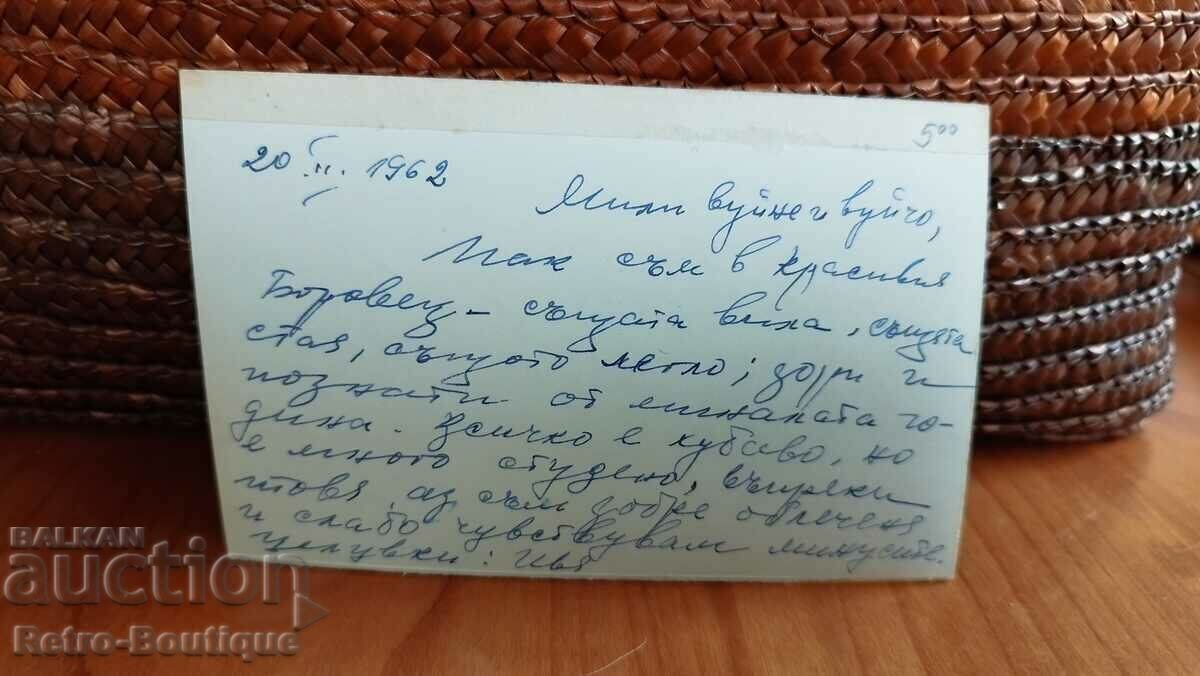 5⁰⁰
20 II. 1962
Мили вуйне и вуйчо,
Пак съм в красивия
Боровец - същата вила, същата
стая, същото легло; дори и
познати от миналата го-
дина. Всичко е хубаво, но
е много студено, въпреки
това аз съм добре облечена
и слабо чувствувам минусите.
Целувки: Ива
BALKAN
auction
Retro-Boutique